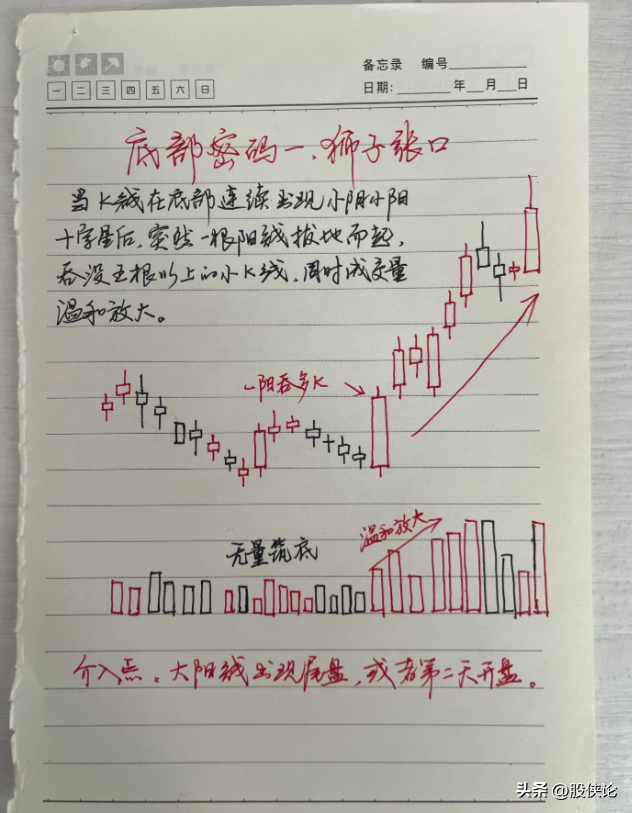 备忘录 编号
一 二 三 四 五 六 日
日期: 年 月 日
底部密码一、狮子张口
当K线在底部连续出现小阴小阳
十字星后,突然一根阳线拔地而起,
吞没五根以上的小K线,同时成交量
温和放大。
一阳吞多K
无量筑底
温和放大
介入点。大阳线出现尾盘,或者第二天开盘。
头条 @股侠论